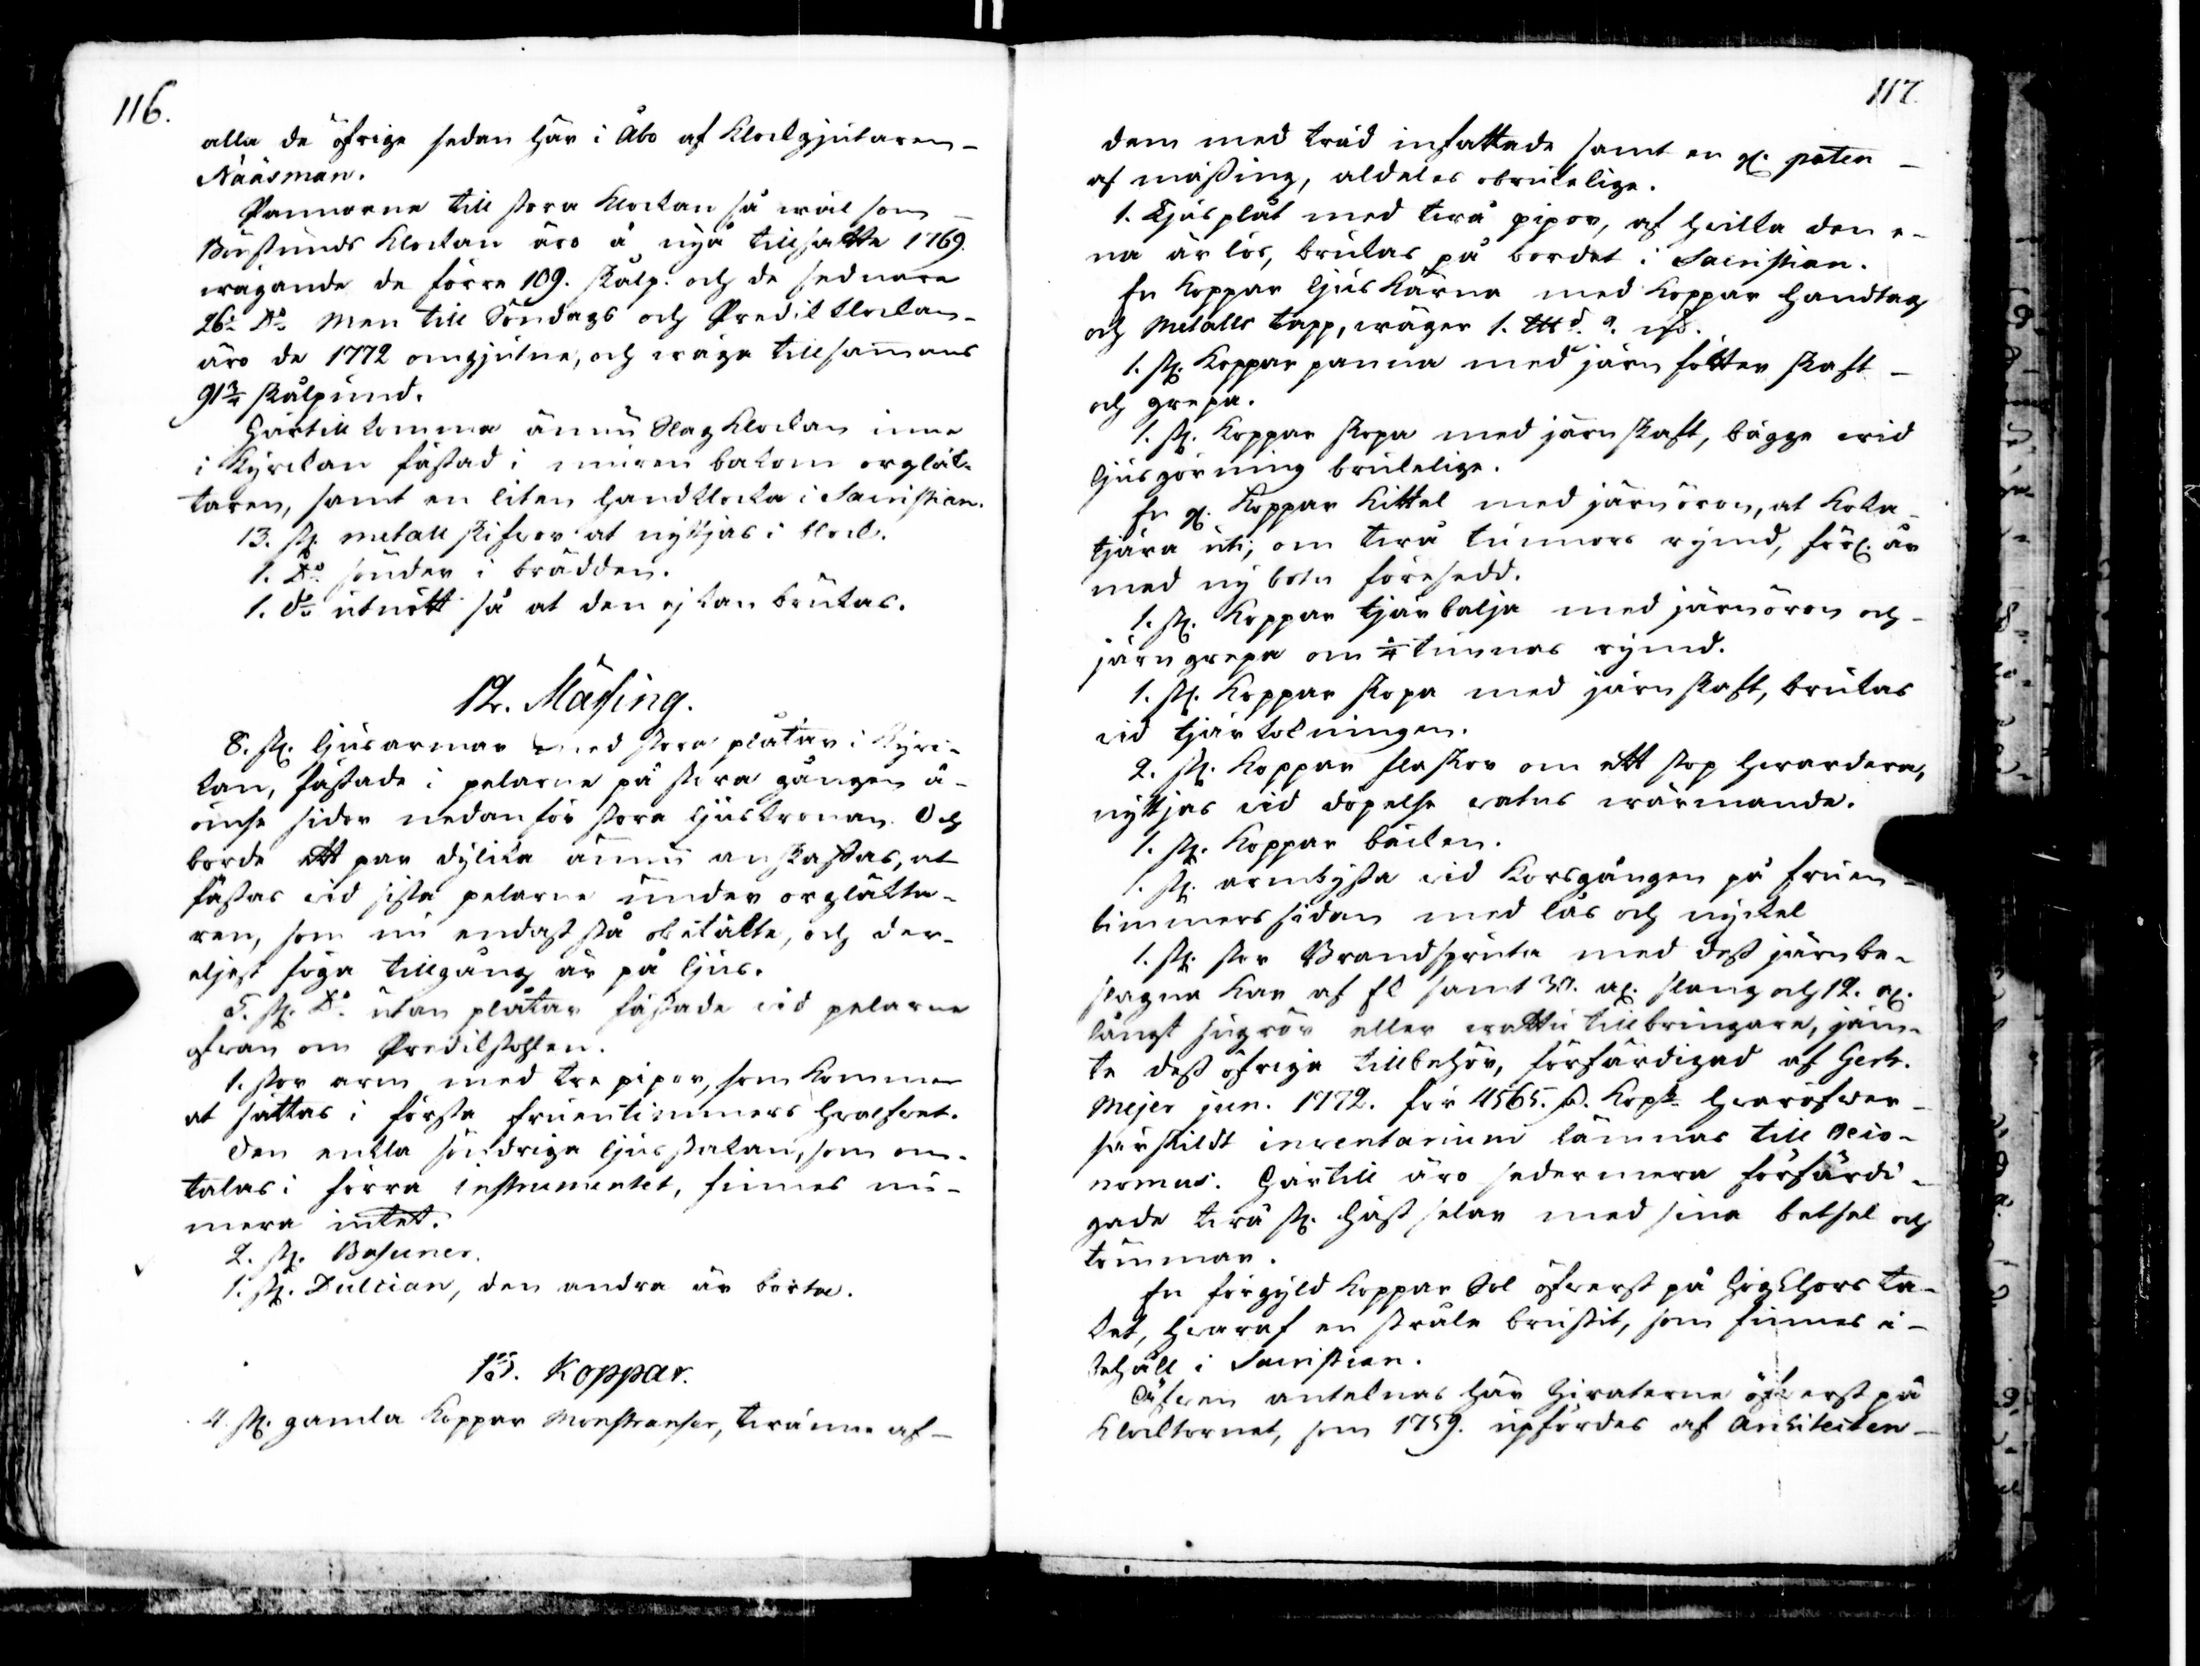 116.
alla de öfrige sedan här i Åbo af Klockgjutaren
Nääsman.
Pannorne till stora Klockan så wäl som
Klockan äro å nyo tillsatte 1769.
wägande de förre 109. skålp. och de sednare
26 Do Men till Söndags och Predik klockan
äro de 1772 omgjutne, och wäga tillsammans
91 3/4 skålpund.
Härtill komma ännu Slag Klockan inne
i Kyrckan fästad i muren bakom orgläk-
taren, samt en liten handklocka i Sacristian.
13. st. metall skifwor at nyttjas i block.
1. Do sönder i brädden.
1. do utnött så at den ej kan brukas.
12. Mässing.
8. st. ljusarmar med stora plåtar i Kyrc-
kan, fästade i pelarne på stora gången å
ömse sidor nedanför stora ljuskronan. Och
borde ett par dylika ännu anskaffas, at
fästas wid sista pelarne under orgläkta-
ren, som nu endast stå obetäkte, och der-
eljest föga tillgång är på ljus.
5. st. Do utan plåtar fästade wid pelarne
ofwan om Predikstohlen.
1. stor arm med tre pipor, som kommer
at sättas i första fruentimmers hwalfwet.
Den enkla söndriga ljusstakan, som om-
talas i förra instrumentet, finnes nu-
mera intet.
2. st. Basuner.
1. st. Dulcian, den andra är borta.
13. Koppar.
4 st. gamla Koppar Monstranser, twänne af
117.
dem med tråd infattade samt en gl. paten
af mässing, aldeles obrukelige.
1. Ljusplåt med twå pipor, af hwilka den e-
na är lös, brukas på bordet i Sacristian.
En Koppar ljus kärna med Koppar handtag
och Metalls tapp, wäger 1.
1. st. Koppar panna med järn fötter skaft
och grepa.
1. st. Koppar skopa med järn skaft, bägge wid
ljusgörning brukelige.
En gl. Koppar Kittel med järnöron, at koka
tjära uti, om twå tunnors rymd, är
med ny botn försedd.
1. st. Koppar tjärbalja med järnöron och
järngrepa om 1/4 tunnas rymd.
1. st. Koppar skopa med järn skaft, brukas
wid tjärkokningen.
2. st. Koppar flaskor om ett stop hwardera,
nyttjas wid döpelse watns wärmande.
1. st. Koppar bäcken.
1. st. armbyssa wid Korsgången på fruen-
timmers sidan med lås och nyckel
1. st. stor Brandspruta med dess järnbe-
slagna Kar af ek samt 30. al. slang och 12. al.
långt sugrör eller wattu tillbringare, jäm-
te dess öfriga tillbehör, förfärdigad af Gerh.
Mejer jun. 1772. för 4565. D. Kopt hwaröfwer
särskildt inventarium lämnas till Oeco-
nomus. Härtill äro sedermera förfärdi-
gade twå st. häst selar med sina betsel och
tömmar.
En förgyld Koppar Sol öfwerst på högChors ta-
ket, hwaraf en stråle brustit, som finnes i
behåll i Sacristian.
Äfwen anteknas här Ziraterne öfwerst på
Klocktornet, som 1759. upfördes af Architecten